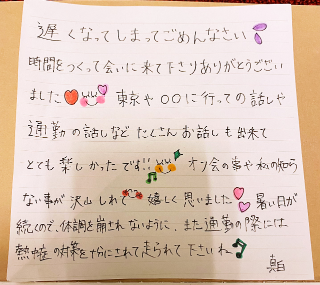 遅くなってしまってごめんなさい
時間をつくって会いに来て下さりありがとうござい
ました 東京や〇〇に行っての話しや
通勤の話しなどたくさんお話しも出来て
とても楽しかったです!! オン会の事や私の知ら
ない事が沢山しれて 嬉しく思いました 暑い日が
続くので、体調を崩されないように、また通勤の際には
熱中症の対策を十分にされて走られて下さいね
真白